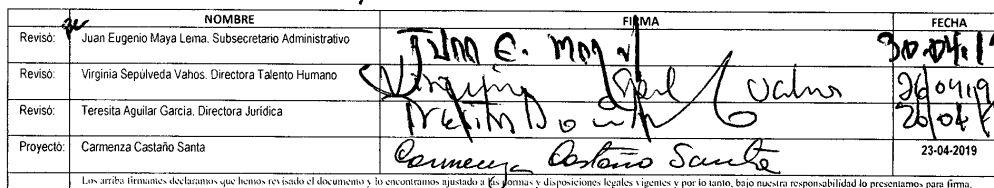 NOMBRE FIRMA FECHA
Revisó: Juan Eugenio Maya Lema. Subsecretario Administrativo Juan E. Maya 30.04.19
Revisó: Virginia Sepúlveda Vahos. Directora Talento Humano Virginia Vahos 26/04/19
Revisó: Teresita Aguilar García. Directora Jurídica 26/04
Proyectó: Carmenza Castaño Santa Carmenza Castaño Santa 23-04-2019
Los arriba firmantes declaramos que hemos revisado el documento y lo encontramos ajustado a las normas y disposiciones legales vigentes y por lo tanto, bajo nuestra responsabilidad lo presentamos para firma.